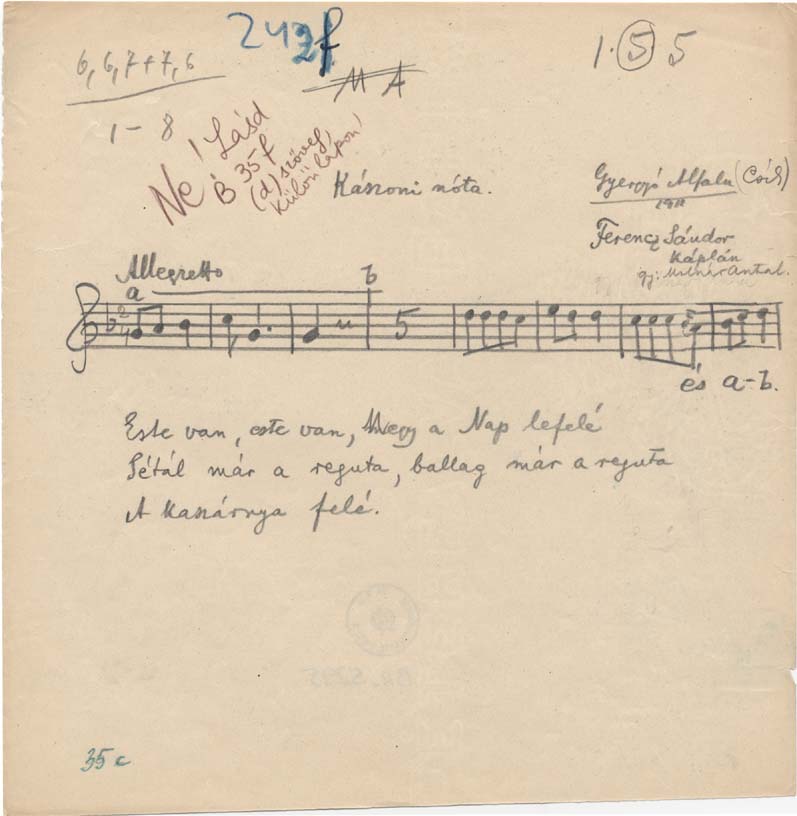 6, 6, 7+7, 6
1-8
242f
M A
1. 5 5
Ne! Lásd
B 35f
(d) szöveg,
külön lapon!
Kászoni nóta.
Gyergyó Alfalu (Csík)
Ferencz Sándor
Káplán
gy: Molnár Antal.
Allegretto
a b
2
4
5
és a-b.
Este van, este van, Megy a Nap lefelé
Sétál már a reguta, ballag már a reguta
A kaszárnya felé.
35 c